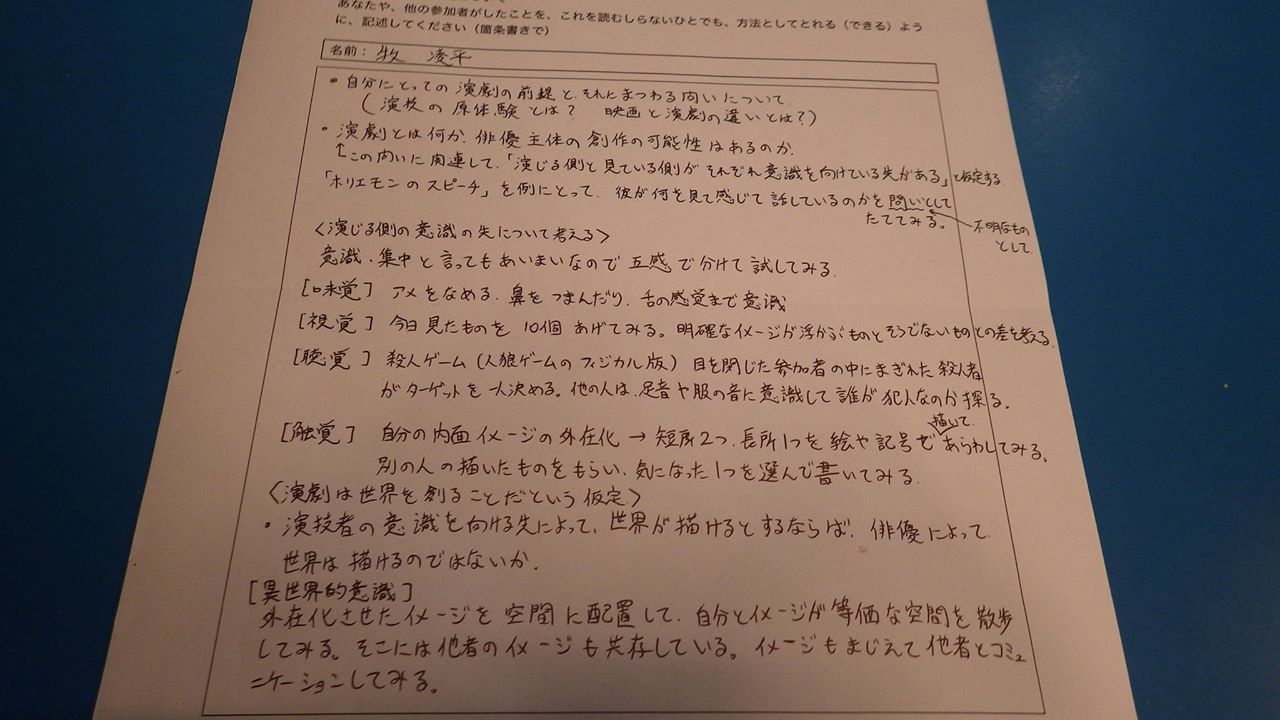 あなたや、他の参加者がしたことを、これを読むしらないひとでも、方法としてとれる（できる）よう
に、記述してください（箇条書きで）
名前： 牧 凌平
• 自分にとっての演劇の前提と、それにまつわる問いについて.
（演技の原体験とは？ 映画と演劇の違いとは？）
• 演劇とは何か. 俳優主体の創作の可能性はあるのか.
↑この問いに関連して.「演じる側と見ている側が それぞれ意識を向けている先がある」と仮定する
「ホリエモンのスピーチ」を例にとって. 彼が何を見て感じて話しているのかを問いとして
たててみる。
不明なもの
として.
〈演じる側の意識の先について考える〉
意識・集中と言ってもあいまいなので五感で分けて試してみる.
［味覚］ アメをなめる. 鼻をつまんだり、舌の感覚まで意識
［視覚］ 今日見たものを10個あげてみる。明確なイメージが浮かぶものとそうでないものとの差を考える.
［聴覚］ 殺人ゲーム（人狼ゲームのフィジカル版）目を閉じた参加者の中にまぎれた殺人者
がターゲットを一人決める。他の人は、足音や服の音に意識して誰が犯人なのか探る。
描いて.
［触覚］ 自分の内面イメージの外在化 → 短所2つ. 長所1つを絵や記号であらわしてみる。
別の人の描いたものをもらい、気になった1つを選んで書いてみる.
〈演劇は世界を創ることだという仮定〉
• 演技者の意識を向ける先によって、世界が描けるとするならば、俳優によって
世界は描けるのではないか.
［異世界的意識］
外在化させたイメージを空間に配置して、自分とイメージが等価な空間を散歩
してみる。そこには他者のイメージも共存している。イメージもまじえて他者とコミュ
ニケーションしてみる。